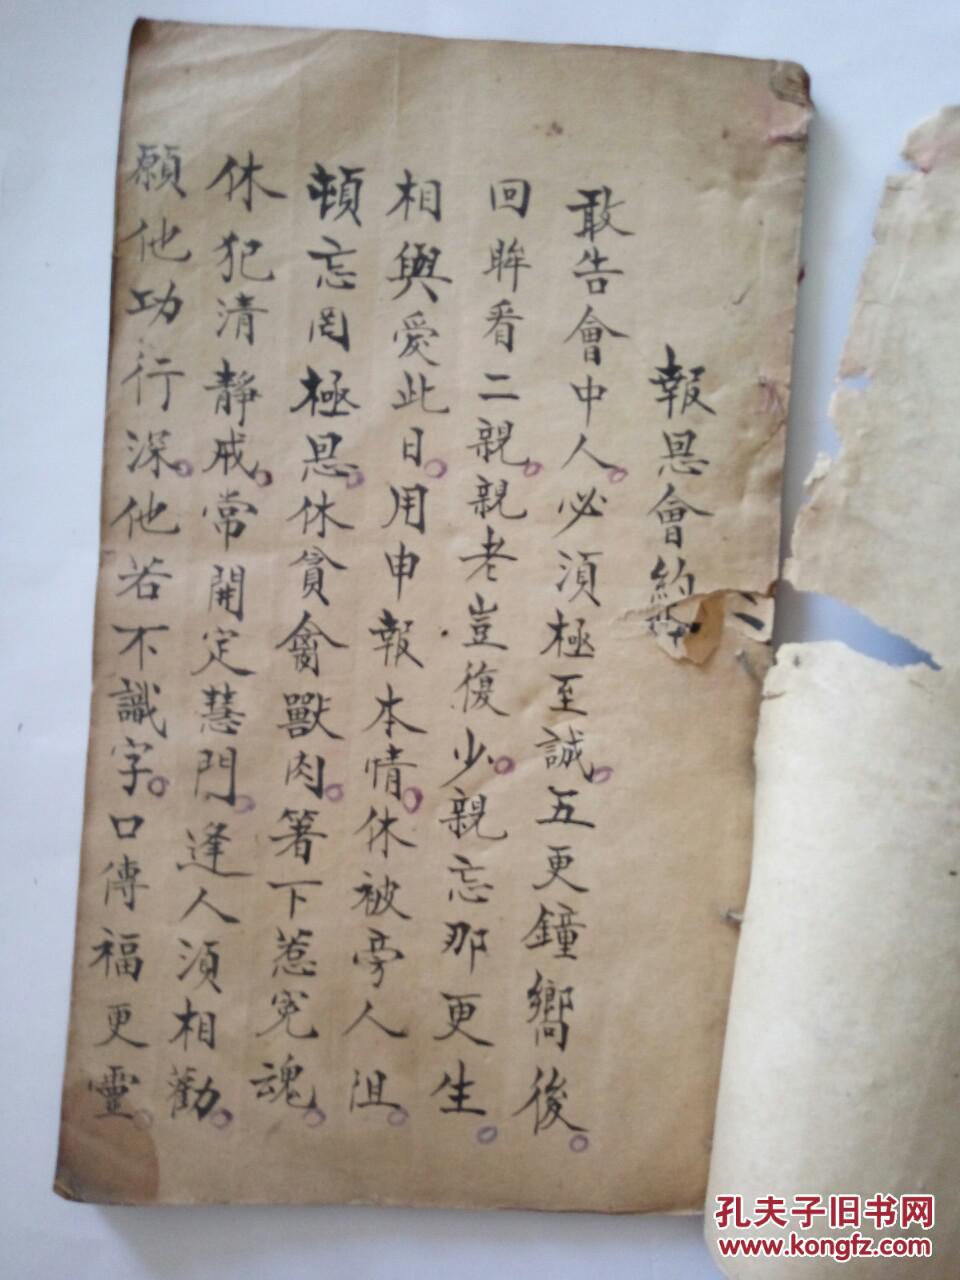 報恩會約
敢告會中人。必須極至誠。五更鐘嚮後。
回眸看二親。親老豈復少。親忘那更生。
相與愛此日。用申報本情。休被旁人阻。
頓忘罔極恩。休貪禽獸肉。箸下惹冤魂。
休犯清靜戒。常開定慧門。逢人須相勸。
願他功行深。他若不識字。口傳福更靈。
孔夫子旧书网
www.kongfz.com